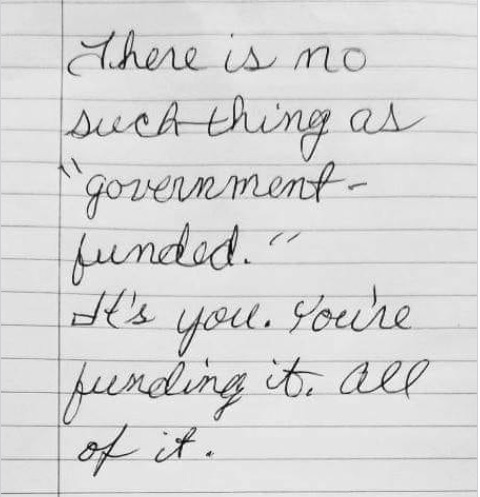 There is no
such thing as
"government-
funded."
It's you. You're
funding it. All
of it.